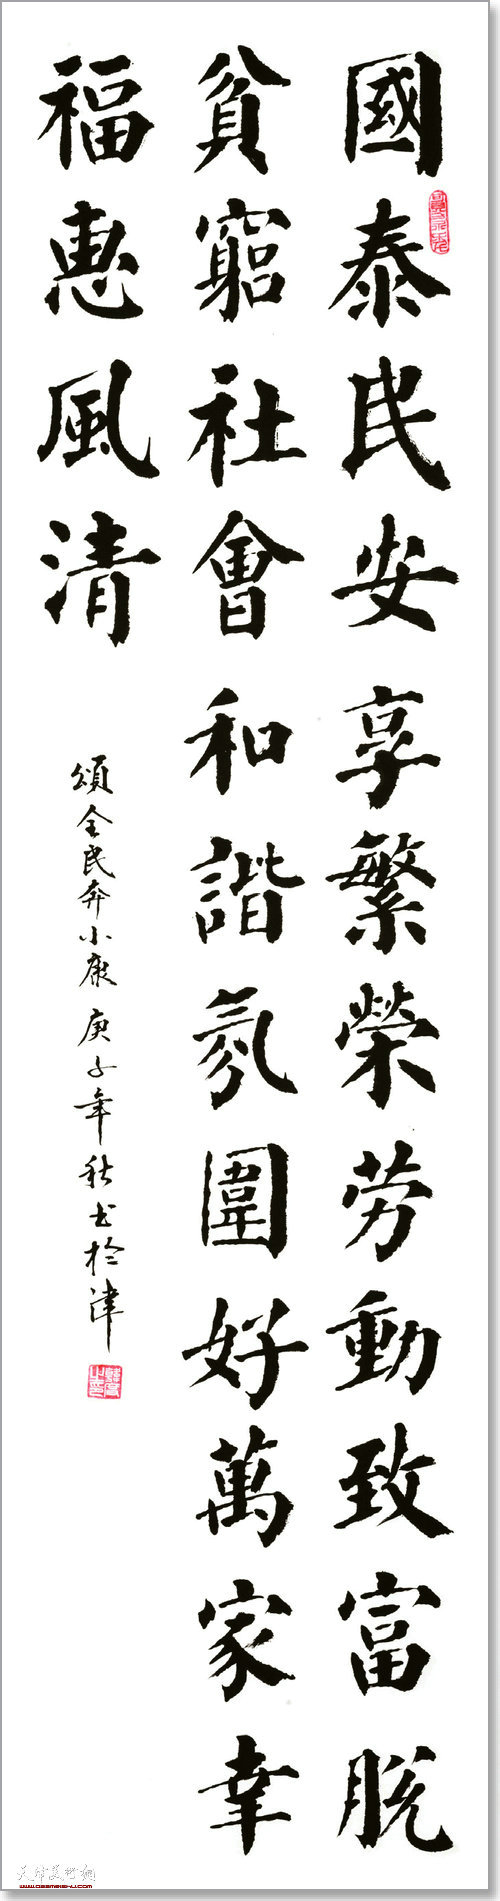 國泰民安享繁榮劳動致富脱
貧窮社會和諧氛圍好萬家幸
福惠風清
頌全民奔小康庚子年秋书於津
天津美术網